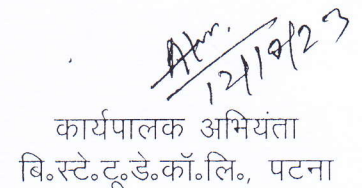 12/10/23
कार्यपालक अभियंता
बि॰स्टे॰टू॰डे॰कॉ॰लि॰, पटना